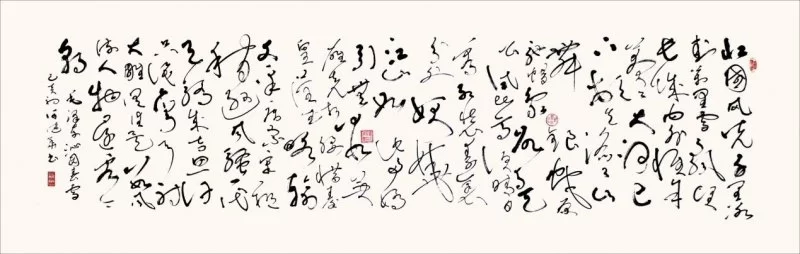 北國风光千里冰
封万里雪飘望
长城内外惟余
莽莽大河上
下顿失滔滔山
舞银蛇原
驰蜡象欲与天
公试比高须晴日
看红装素裹
分外妖娆
江山如此多娇
引无数英
雄竞折腰惜秦
皇汉武略输
文采唐宗宋祖
稍逊风骚一代
天骄成吉思汗
只识弯弓射
大雕俱往矣数风
流人物还看今
朝
毛泽东沁园春雪